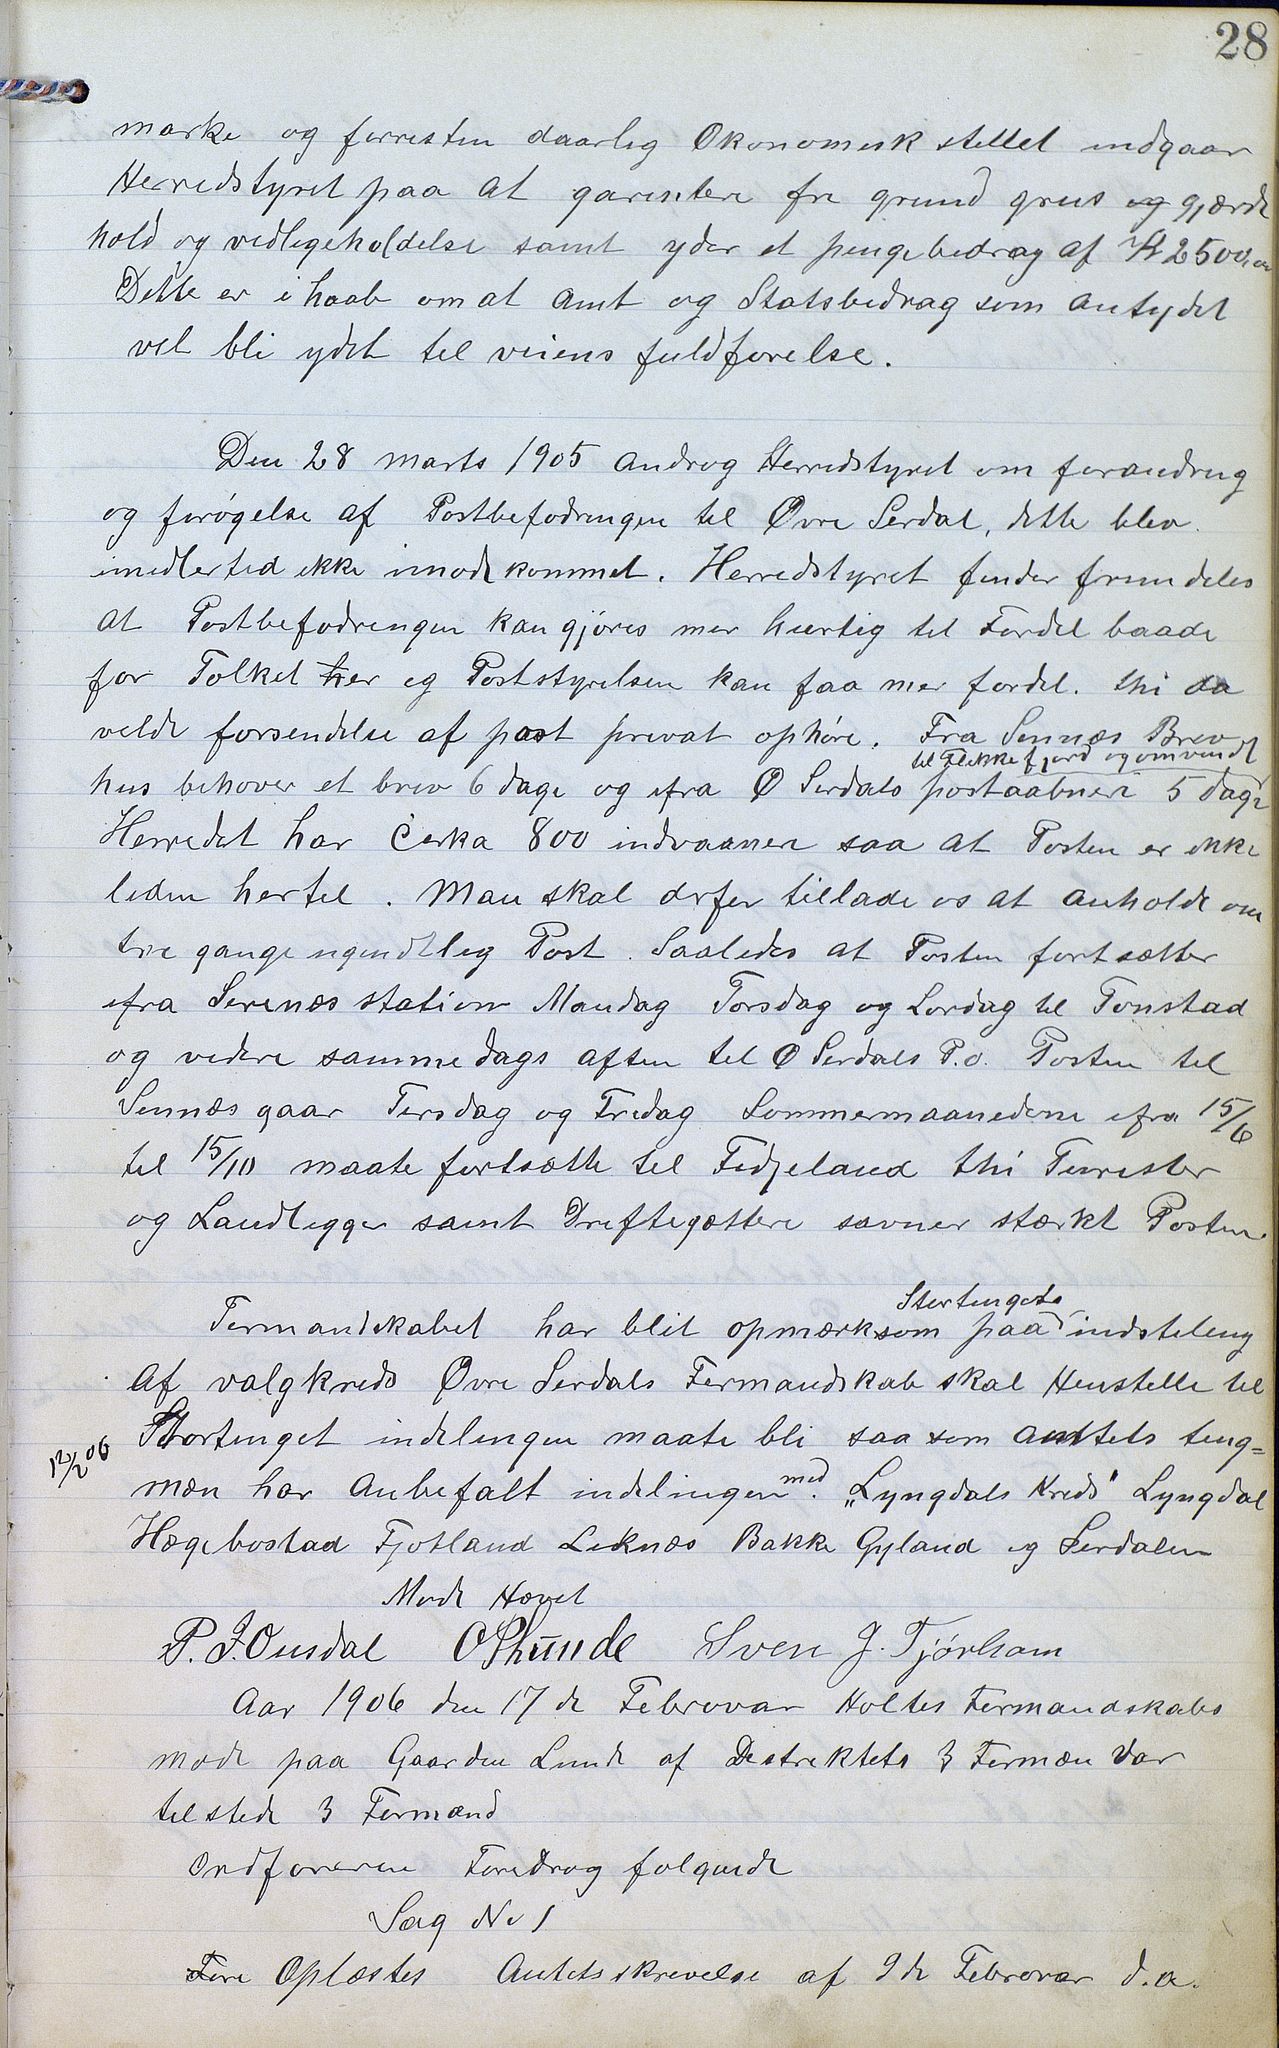 28
marke og forresten daarlig Økonomisk stellet indgaar
Herredstyret paa at garentere fri grund grus og gjærde
hold og vedligeholdelse samt yder et pengebedrag af Kr 2500,00
Dette er i haab om at Amt og Statsbedrag som antydet
vel bli ydet til veiens fuldførelse.
Den 28 marts 1905 androg Herredstyret om forandring
og forøgelse af Postbefodringen til Øvre Serdal, dette blev
imedlertid ikke imødekommet. Herredstyret finder fremdeles
at Postbefodringen kan gjøres mer hurtig til Fordel baade
for Folket her og Poststyrelsen kan faa mer fordel. thi da
velde forsendelse af post privat ophøre. Fra Sennæs Brev
til Flekkefjord og omvendt
hus behøver et brev 6 dage og ifra Ø Serdals postaabneri 5 dage
Herredet har Cerka 800 indvaanere saa at Posten er ikke
liden hertil. Man skal derfor tillade os at anholde om
tre gange ugendtlig Post. Saaledes at Posten fortsætter
ifra Serenæs station Mandag Torsdag og Lordag til Tonstad
og videre samme dags aften til Ø Serdals P.o. Posten til
Sennæs gaar Tirsdag og Fredag Sommermaanederne ifra 15/6
til 15/10 maate fortsætte til Fidjeland thi Turister
og Landligger samt Driftegættere savner stærkt Posten.
Stortingets
Formandskabet har blit opmærksom paa indsteling
af valgkreds Øvre Serdals Formandskab skal Henstille til
Stortinget indelingen maate bli saa som Amtets ting=
12/2 06
mæn har Anbefalt indelingen med. „Lyngdals Kreds" Lyngdal
Hægebostad Fjotland Liknæs Bakke Gyland og Serdalen
Møde Hævet
P. J. Ousdal O P Lunde Sven J. Tjørhom
Aar 1906 den 17 de Februar Holtes Formandskabs
møde paa Gaarden Lunde af Destriktets 3 Formæn var
tilstede 3 Formænd
Ordføreren Foredrog følgende
Sag No 1
Fore Oplæstes Amtets skrivelse af 9 de Februar d.a.